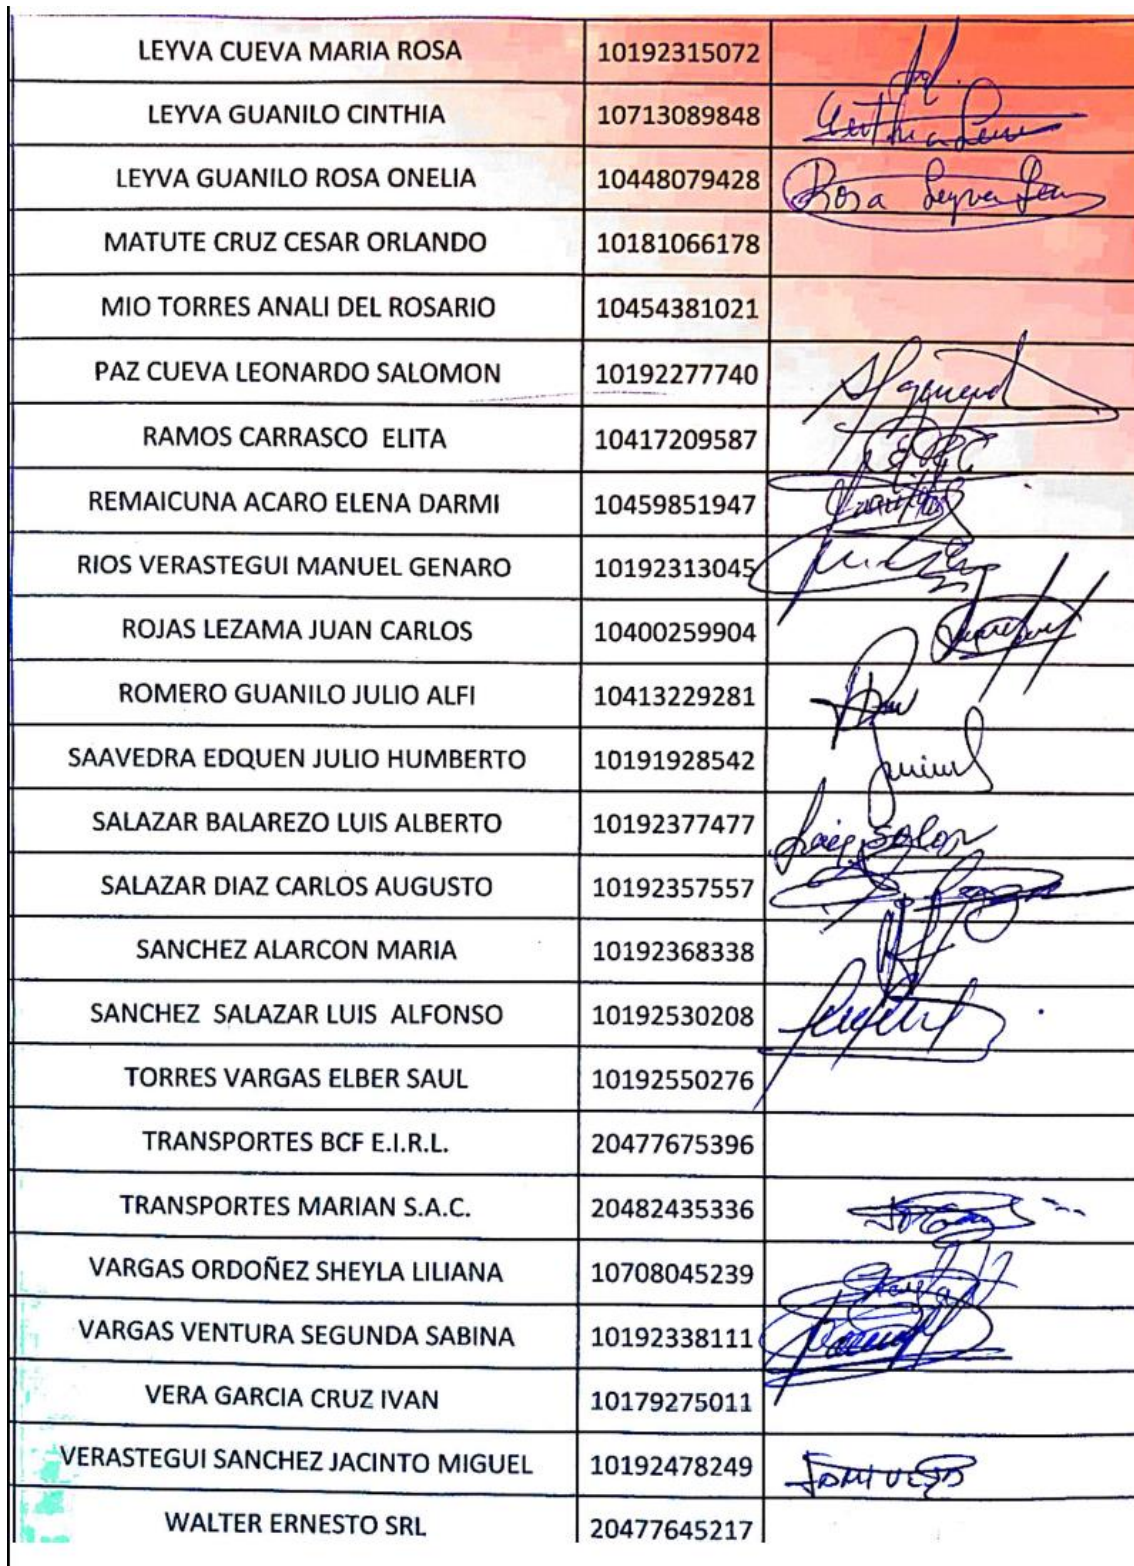 LEYVA CUEVA MARIA ROSA 10192315072
LEYVA GUANILO CINTHIA 10713089848
LEYVA GUANILO ROSA ONELIA 10448079428 Rosa Leyva
MATUTE CRUZ CESAR ORLANDO 10181066178
MIO TORRES ANALI DEL ROSARIO 10454381021
PAZ CUEVA LEONARDO SALOMON 10192277740
RAMOS CARRASCO ELITA 10417209587
REMAICUNA ACARO ELENA DARMI 10459851947
RIOS VERASTEGUI MANUEL GENARO 10192313045
ROJAS LEZAMA JUAN CARLOS 10400259904
ROMERO GUANILO JULIO ALFI 10413229281
SAAVEDRA EDQUEN JULIO HUMBERTO 10191928542
SALAZAR BALAREZO LUIS ALBERTO 10192377477
SALAZAR DIAZ CARLOS AUGUSTO 10192357557
SANCHEZ ALARCON MARIA 10192368338
SANCHEZ SALAZAR LUIS ALFONSO 10192530208
TORRES VARGAS ELBER SAUL 10192550276
TRANSPORTES BCF E.I.R.L. 20477675396
TRANSPORTES MARIAN S.A.C. 20482435336
VARGAS ORDOÑEZ SHEYLA LILIANA 10708045239
VARGAS VENTURA SEGUNDA SABINA 10192338111
VERA GARCIA CRUZ IVAN 10179275011
VERASTEGUI SANCHEZ JACINTO MIGUEL 10192478249
WALTER ERNESTO SRL 20477645217